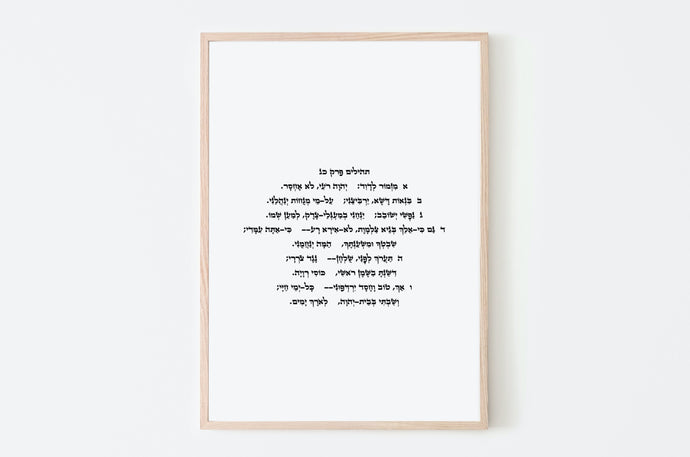 תהילים פרק כג
א מִזְמוֹר לְדָוִד: יְהוָה רֹעִי, לֹא אֶחְסָר.
ב בִּנְאוֹת דֶּשֶׁא, יַרְבִּיצֵנִי; עַל-מֵי מְנֻחוֹת יְנַהֲלֵנִי.
ג נַפְשִׁי יְשׁוֹבֵב; יַנְחֵנִי בְמַעְגְּלֵי-צֶדֶק, לְמַעַן שְׁמוֹ.
ד גַּם כִּי-אֵלֵךְ בְּגֵיא צַלְמָוֶת, לֹא-אִירָא רָע-- כִּי-אַתָּה עִמָּדִי;
שִׁבְטְךָ וּמִשְׁעַנְתֶּךָ, הֵמָּה יְנַחֲמֻנִי.
ה תַּעֲרֹךְ לְפָנַי, שֻׁלְחָן-- נֶגֶד צֹרְרָי;
דִּשַּׁנְתָּ בַשֶּׁמֶן רֹאשִׁי, כּוֹסִי רְוָיָה.
ו אַךְ, טוֹב וָחֶסֶד יִרְדְּפוּנִי-- כָּל-יְמֵי חַיָּי;
וְשַׁבְתִּי בְּבֵית-יְהוָה, לְאֹרֶךְ יָמִים.